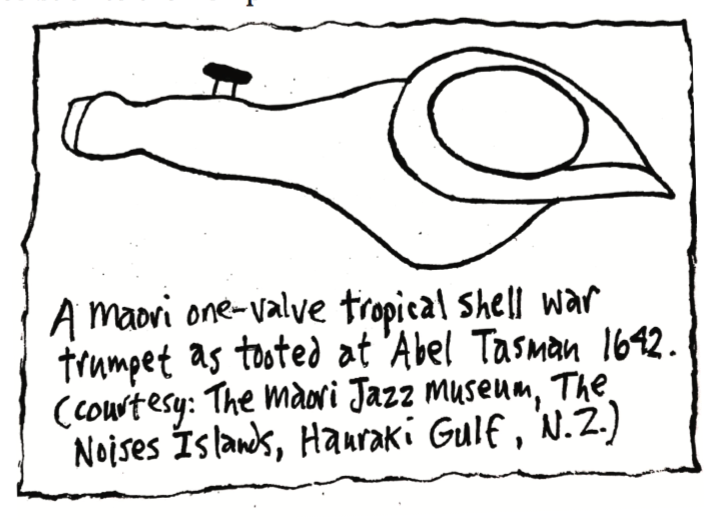 A maori one-valve tropical shell war
trumpet as tooted at Abel Tasman 1642.
(courtesy: The Māori Jazz museum, The
Noises Islands, Hauraki Gulf, N.Z.)